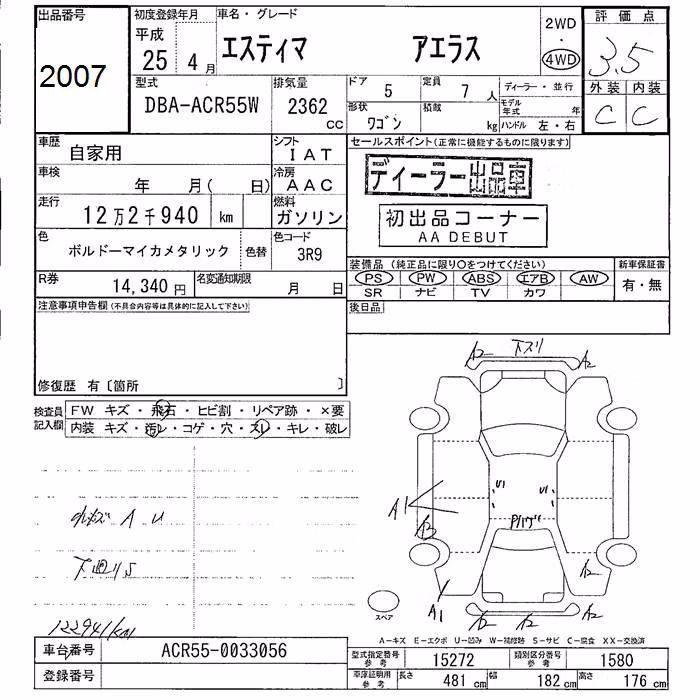 出品番号 初度登録年月 車名・グレード 2WD 評価点
2007 平成 25年 4月 エスティマ アエラス ・ 4WD 3.5
型式 排気量 ドア 定員 ディーラー・並行 外装 内装
DBA-ACR55W 2362 cc 5 7人 モデル年式 年 C C
形状 積載 ハンドル 左・右
ワゴン kg
車歴 シフト セールスポイント(正常に機能するものに限ります)
自家用 IAT
車検 冷房 ディーラー出品車
年 月( 日) AAC
走行 燃料 初出品コーナー
12万2千940 km ガソリン AA DEBUT
色 色替 色コード
ボルドーマイカメタリック 3R9
装備品(純正品に限り○をつけてください) 新車保証書
PS PW ABS エアB AW 有・無
SR ナビ TV カワ
R券 名変通知期限
14,340円 月 日
注意事項申告欄(不具合内容等は具体的に記入して下さい) 後日品
修復歴 有〔箇所 〕
検査員記入欄 FW キズ・飛石・ヒビ割・リペア跡・×要
内装 キズ・汚レ・コゲ・穴・スレ・キレ・破レ
A2 下スリ A2
A1
A2
A1 A2 A2
A U
下廻りS
122941km
スペア
A-キズ E-エクボ U-凹み W-補修跡 S-サビ C-腐食 XX-交換済
車台番号 ACR55-0033056
登録番号
型式指定番号 参考 15272 類別区分番号 参考 1580
車庫証明用 参考 長さ 481cm 幅 182cm 高さ 176cm